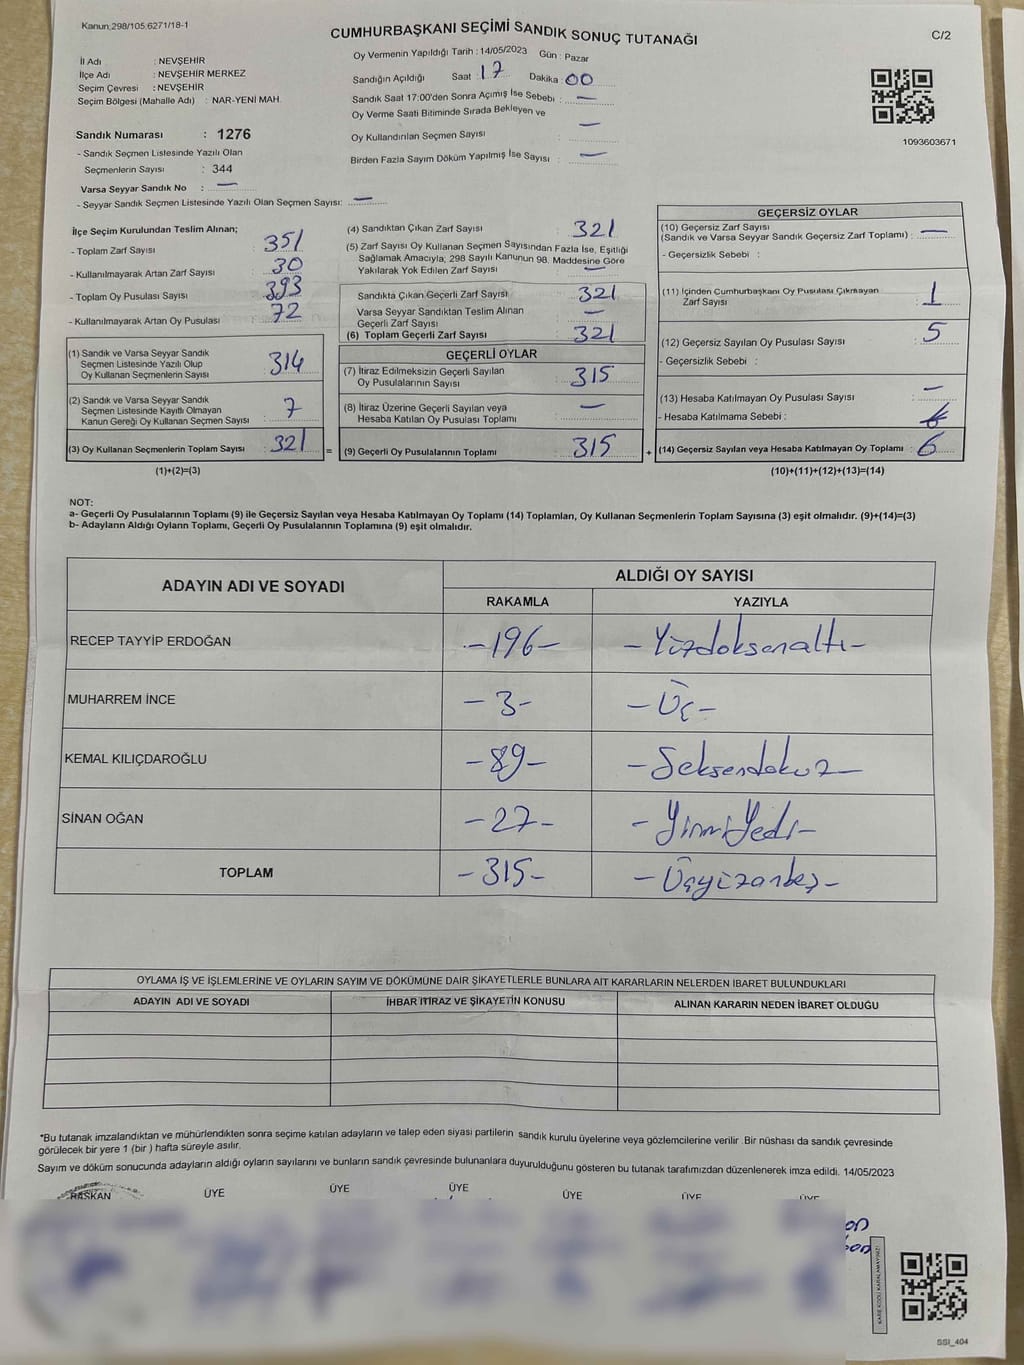 Kanun:298/105.6271/18-1
CUMHURBAŞKANI SEÇİMİ SANDIK SONUÇ TUTANAĞI
C/2
İl Adı : NEVŞEHİR
İlçe Adı : NEVŞEHİR MERKEZ
Seçim Çevresi : NEVŞEHİR
Seçim Bölgesi (Mahalle Adı) : NAR-YENİ MAH.
Oy Vermenin Yapıldığı Tarih : 14/05/2023 Gün : Pazar
Sandığın Açıldığı Saat : 17 Dakika : 00
Sandık Saat 17:00'den Sonra Açımış İse Sebebi : —
Oy Verme Saati Bitiminde Sırada Bekleyen ve
Oy Kullandırılan Seçmen Sayısı : —
Birden Fazla Sayım Döküm Yapılmış İse Sayısı : —
1093603671
Sandık Numarası : 1276
- Sandık Seçmen Listesinde Yazılı Olan
Seçmenlerin Sayısı : 344
Varsa Seyyar Sandık No : —
- Seyyar Sandık Seçmen Listesinde Yazılı Olan Seçmen Sayısı: —
İlçe Seçim Kurulundan Teslim Alınan;
- Toplam Zarf Sayısı : 351
- Kullanılmayarak Artan Zarf Sayısı : 30
- Toplam Oy Pusulası Sayısı : 393
- Kullanılmayarak Artan Oy Pusulası : 72
(1) Sandık ve Varsa Seyyar Sandık
Seçmen Listesinde Yazılı Olup
Oy Kullanan Seçmenlerin Sayısı : 314
(2) Sandık ve Varsa Seyyar Sandık
Seçmen Listesinde Kayıtlı Olmayan
Kanun Gereği Oy Kullanan Seçmen Sayısı : 7
(3) Oy Kullanan Seçmenlerin Toplam Sayısı : 321
(1)+(2)=(3)
(4) Sandıktan Çıkan Zarf Sayısı : 321
(5) Zarf Sayısı Oy Kullanan Seçmen Sayısından Fazla İse, Eşitliği
Sağlamak Amacıyla; 298 Sayılı Kanunun 98. Maddesine Göre
Yakılarak Yok Edilen Zarf Sayısı : —
Sandıkta Çıkan Geçerli Zarf Sayısı : 321
Varsa Seyyar Sandıktan Teslim Alınan
Geçerli Zarf Sayısı : —
(6) Toplam Geçerli Zarf Sayısı : 321
GEÇERLİ OYLAR
(7) İtiraz Edilmeksizin Geçerli Sayılan
Oy Pusulalarının Sayısı : 315
(8) İtiraz Üzerine Geçerli Sayılan veya
Hesaba Katılan Oy Pusulası Toplamı : —
= (9) Geçerli Oy Pusulalarının Toplamı : 315
GEÇERSİZ OYLAR
(10) Geçersiz Zarf Sayısı
(Sandık ve Varsa Seyyar Sandık Geçersiz Zarf Toplamı) : —
- Geçersizlik Sebebi :
(11) İçinden Cumhurbaşkanı Oy Pusulası Çıkmayan
Zarf Sayısı : 1
(12) Geçersiz Sayılan Oy Pusulası Sayısı : 5
- Geçersizlik Sebebi :
(13) Hesaba Katılmayan Oy Pusulası Sayısı : —
- Hesaba Katılmama Sebebi :
+ (14) Geçersiz Sayılan veya Hesaba Katılmayan Oy Toplamı : 6
(10)+(11)+(12)+(13)=(14)
NOT:
a- Geçerli Oy Pusulalarının Toplamı (9) ile Geçersiz Sayılan veya Hesaba Katılmayan Oy Toplamı (14) Toplamları, Oy Kullanan Seçmenlerin Toplam Sayısına (3) eşit olmalıdır. (9)+(14)=(3)
b- Adayların Aldığı Oyların Toplamı, Geçerli Oy Pusulalarının Toplamına (9) eşit olmalıdır.
ADAYIN ADI VE SOYADI ALDIĞI OY SAYISI
RAKAMLA YAZIYLA
RECEP TAYYİP ERDOĞAN -196- -Yüzdoksanaltı-
MUHARREM İNCE -3- -Üç-
KEMAL KILIÇDAROĞLU -89- -Seksendokuz-
SİNAN OĞAN -27- -YirmiYedi-
TOPLAM -315- -Üçyüzonbeş-
OYLAMA İŞ VE İŞLEMLERİNE VE OYLARIN SAYIM VE DÖKÜMÜNE DAİR ŞİKAYETLERLE BUNLARA AİT KARARLARIN NELERDEN İBARET BULUNDUKLARI
ADAYIN ADI VE SOYADI İHBAR İTİRAZ VE ŞİKAYETİN KONUSU ALINAN KARARIN NEDEN İBARET OLDUĞU
*Bu tutanak imzalandıktan ve mühürlendikten sonra seçime katılan adayların ve talep eden siyasi partilerin sandık kurulu üyelerine veya gözlemcilerine verilir .Bir nüshası da sandık çevresinde
görülecek bir yere 1 (bir ) hafta süreyle asılır.
Sayım ve döküm sonucunda adayların aldığı oyların sayılarını ve bunların sandık çevresinde bulunanlara duyurulduğunu gösteren bu tutanak tarafımızdan düzenlenerek imza edildi. 14/05/2023
BAŞKAN ÜYE ÜYE ÜYE ÜYE ÜYE ÜYE
KARE KODU KARALAMAYINIZ!
SSI_404